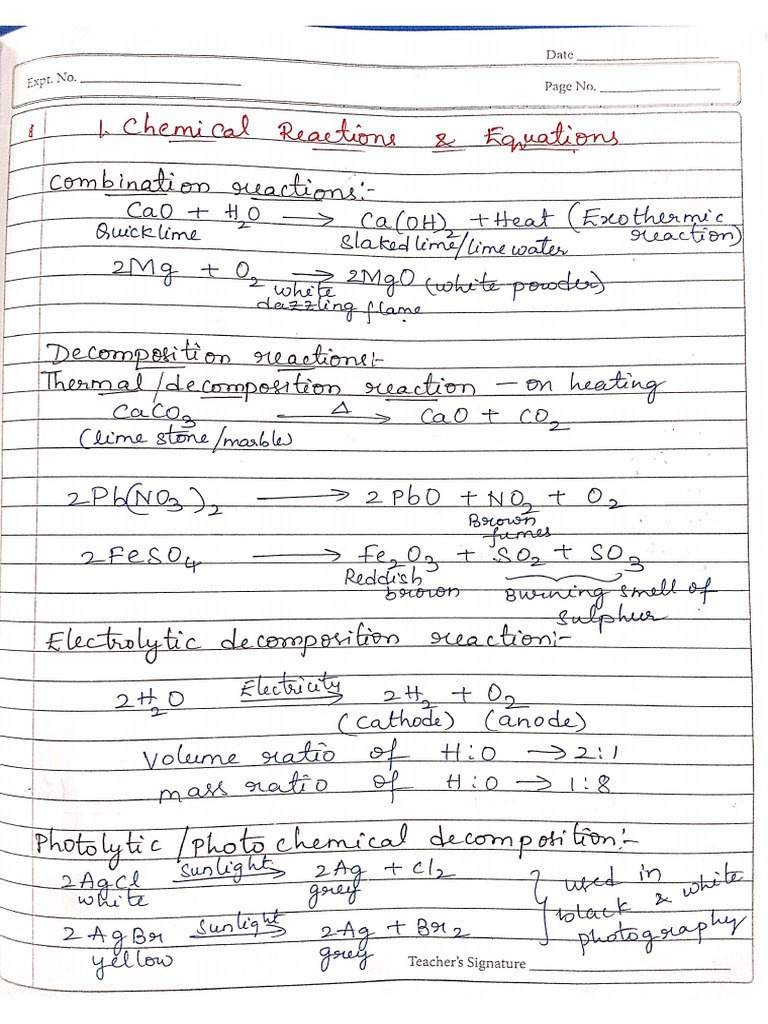 Date
Expt. No.
Page No.
1. Chemical Reactions & Equations
Combination reactions:-
CaO + H2O → Ca(OH)2 + Heat (Exothermic reaction)
Quicklime Slaked lime/lime water
2Mg + O2 → 2MgO (white powder)
white dazzling flame
Decomposition reactions:-
Thermal/decomposition reaction - on heating
CaCO3 Δ→ CaO + CO2
(lime stone/marble)
2Pb(NO3)2 → 2PbO + NO2 + O2
Brown fumes
2FeSO4 → Fe2O3 + SO2 + SO3
Reddish brown Burning smell of sulphur
Electrolytic decomposition reaction:-
2H2O Electricity→ 2H2 + O2
(Cathode) (anode)
Volume ratio of H:O → 2:1
mass ratio of H:O → 1:8
Photolytic/photo chemical decomposition:-
2AgCl Sunlight→ 2Ag + Cl2 } used in
white grey black & white
2AgBr Sunlight→ 2Ag + Br2 photography
yellow grey
Teacher's Signature